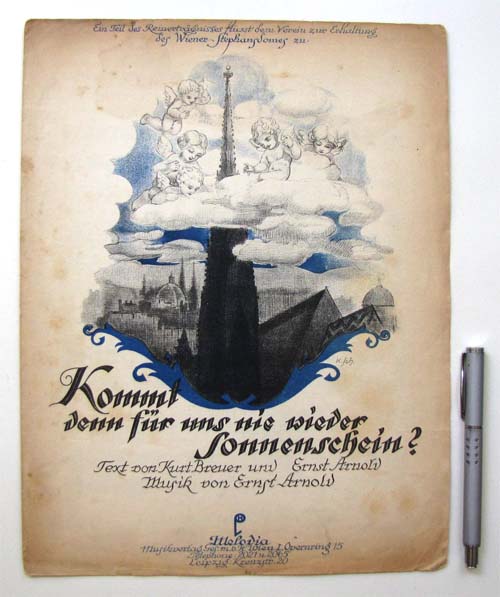 Ein Teil des Reinerträgnisses fliesst dem Verein zur Erhaltung
des Wiener Stephansdomes zu.
K. Sch.
Kommt
denn für uns nie wieder
Sonnenschein?
Text von Kurt Breuer und Ernst Arnold
Musik von Ernst Arnold
Melodia
Musikverlag Ges. m. b. H. Wien I. Opernring 15
Telephone
Leipzig